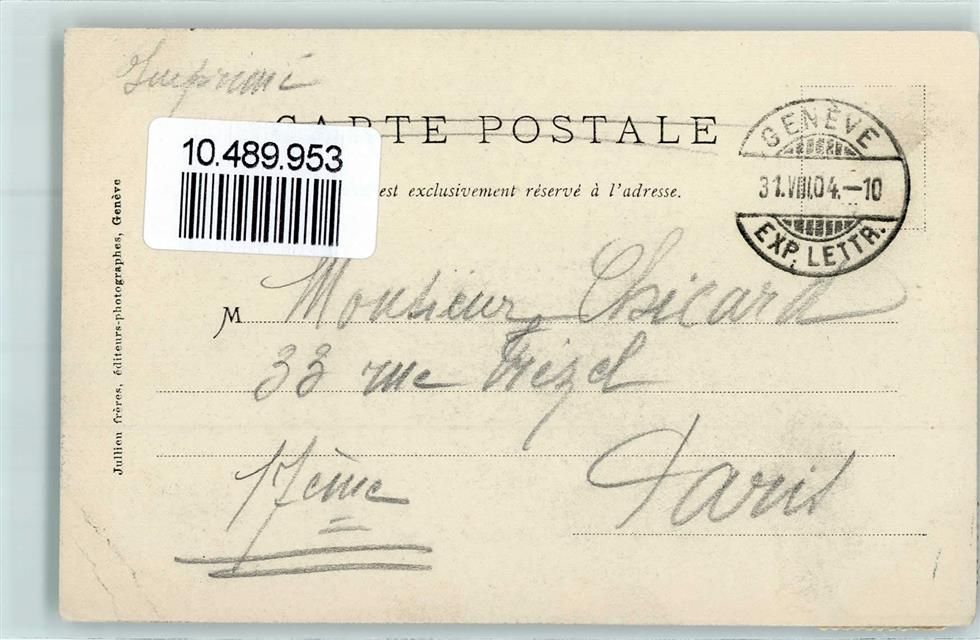 Imprimé
CARTE POSTALE
10.489.953
est exclusivement réservé à l'adresse.
GENÈVE
31.VIII.04.–10
EXP. LETTR.
Jullien frères, éditeurs-photographes, Genève
M Monsieur Chicard
33 rue
17ème Paris